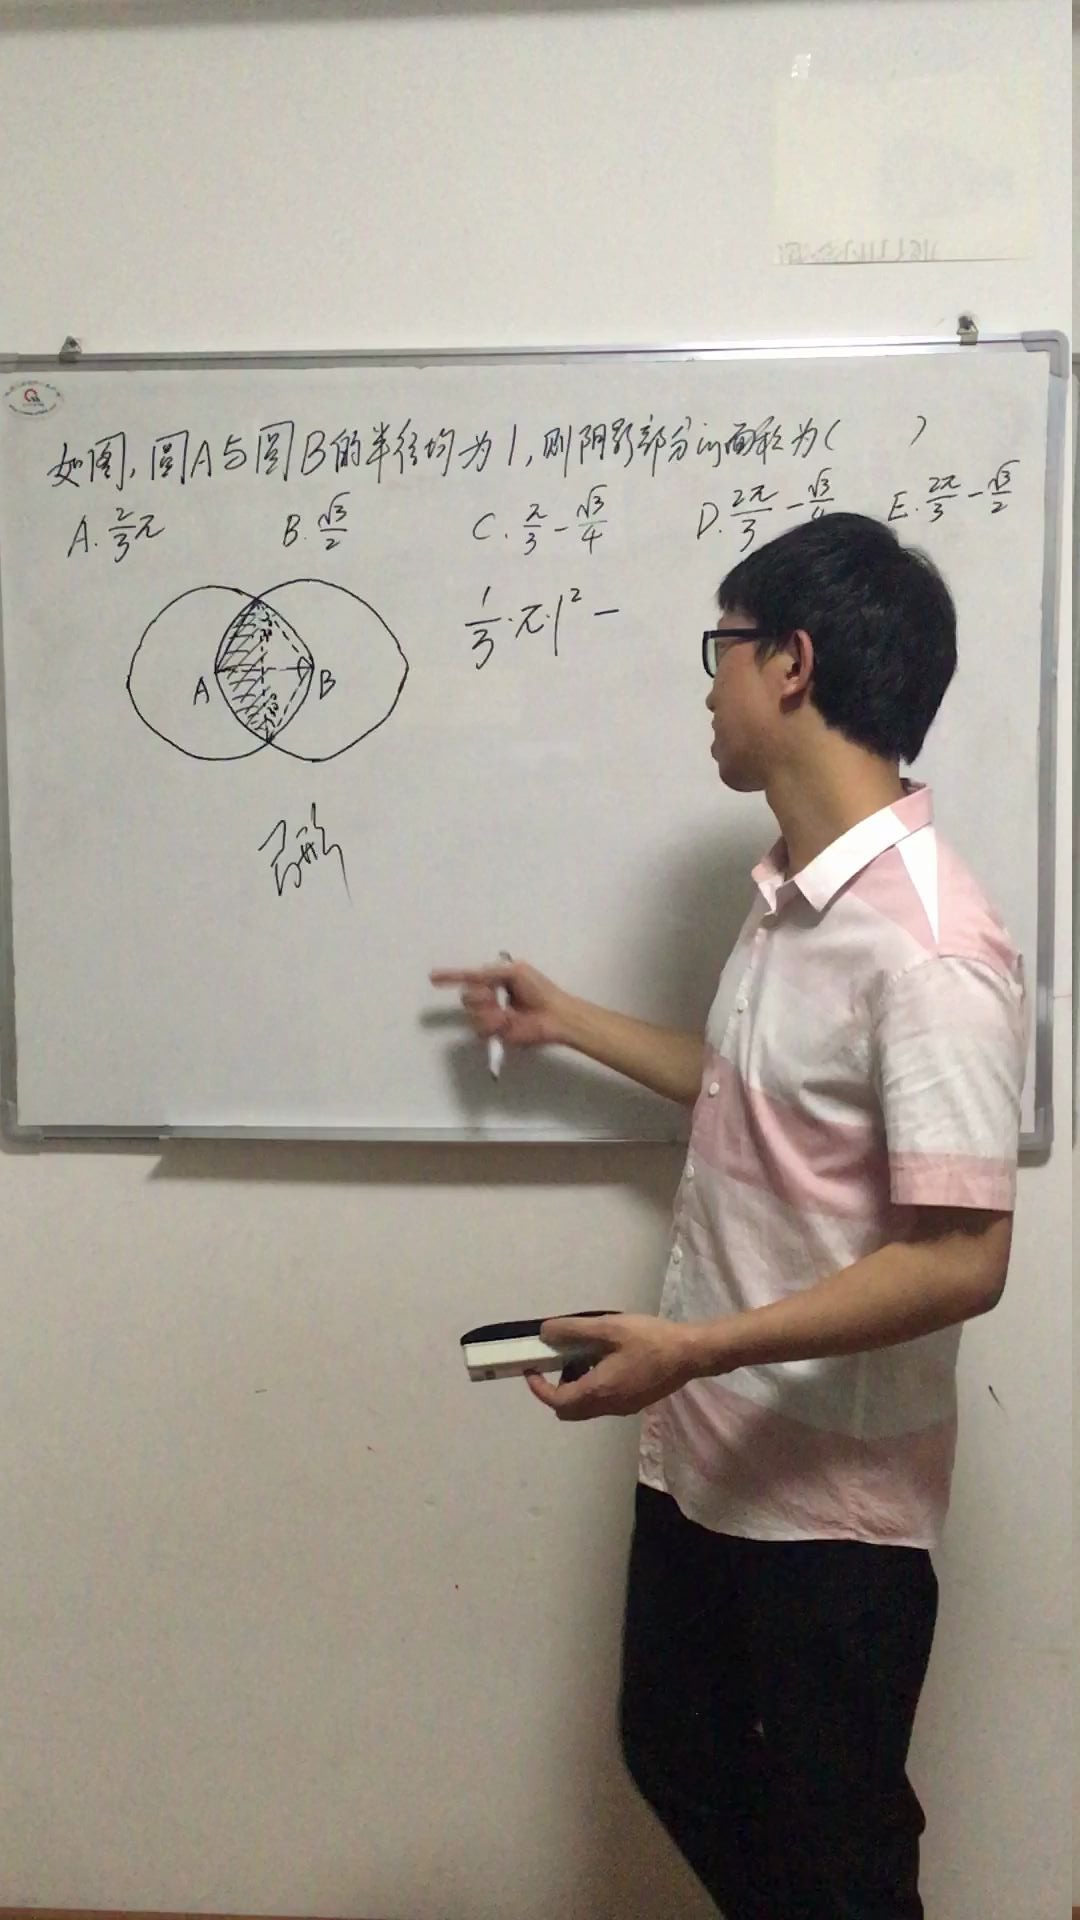 如图,圆A与圆B的半径均为1,则阴影部分的面积为( )
A. 2/3 π B. √3/2 C. π/3 - √3/4 D. 2π/3 - √3/4 E. 2π/3 - √3/2
1/3 · π · 1² -
A B
弓形